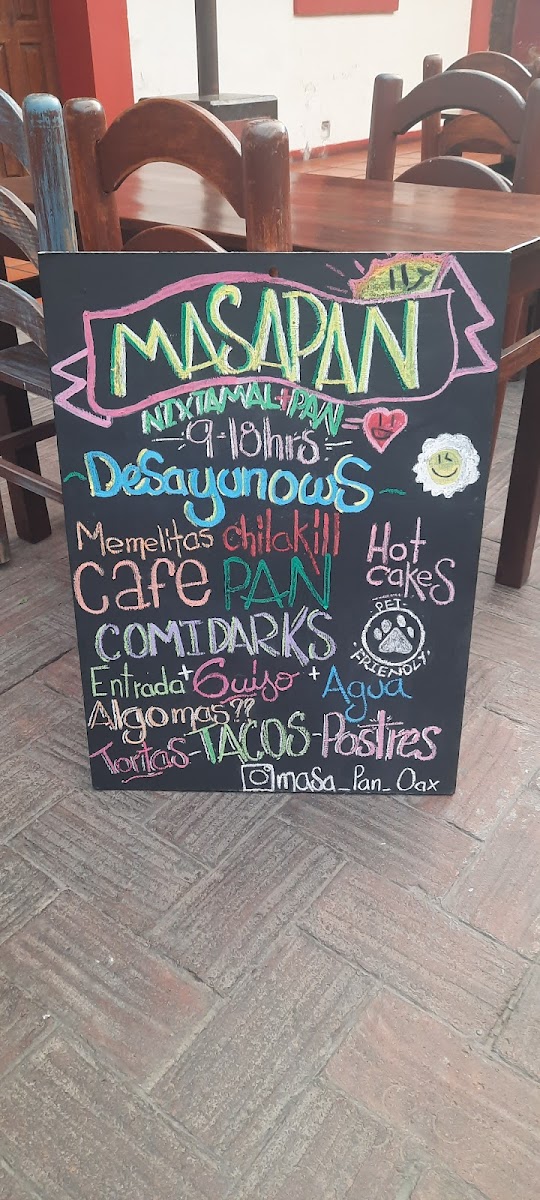 MASAPAN
NIXTAMAL+PAN=
9-18hrs
~DesayunowS~
Memelitas chilakill
Cafe PAN
Hot
cakes
COMIDARKS
PET
FRIENDLY!
Entrada + Guiso + Agua
Algomas??
Tortas-TACOS-Postres
masa_Pan_Oax